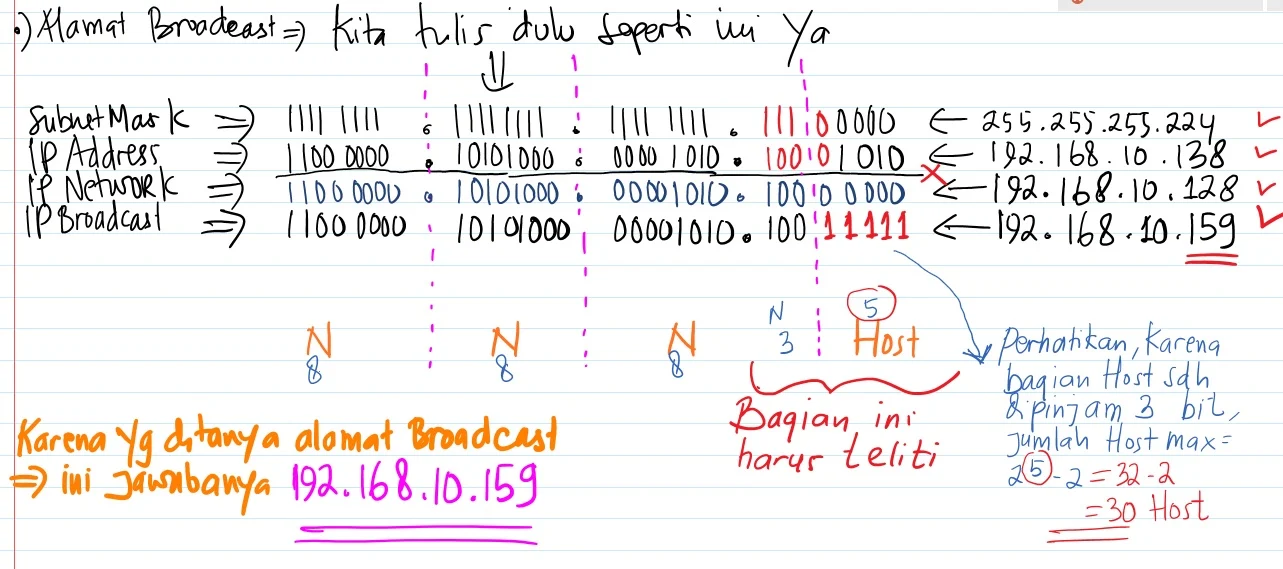 •) Alamat Broadcast => Kita tulis dulu seperti ini Ya
Subnet Mask => 1111 1111 . 1111 1111 . 1111 1111 . 111 0 0000 <- 255.255.255.224 ✓
IP Address => 1100 0000 . 10101000 . 0000 1010 . 100 0 1010 <- 192.168.10.138 ✓
IP Network => 1100 0000 . 10101000 . 00001010 . 100 0 0000 <- 192.168.10.128 ✓
IP Broadcast => 1100 0000 . 10101000 00001010 . 100 11111 <- 192.168.10.159 ✓
N N N N 5
8 8 8 3 Host
Bagian ini
harus teliti
Perhatikan, Karena
bagian Host sdh
dipinjam 3 bit,
Jumlah Host max =
2⁵ - 2 = 32 - 2
= 30 Host
Karena Yg ditanya alamat Broadcast
=> ini Jawabanya 192.168.10.159